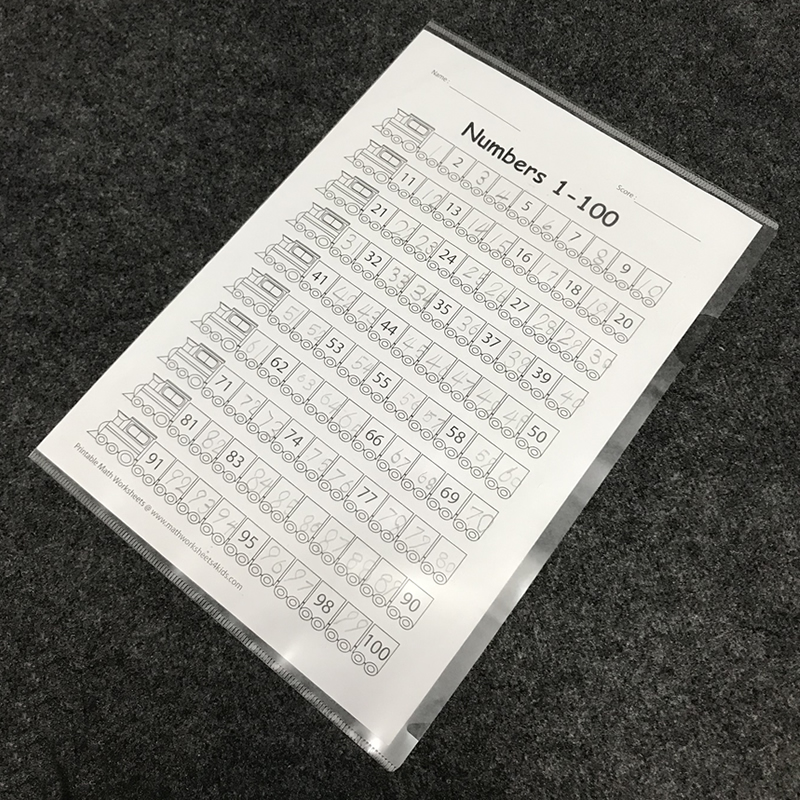 Name :
Score :
Numbers 1-100
1 2 3 4 5 6 7 8 9
11 12 13 14 15 16 17 18 19 20
21 22 23 24 25 26 27 28 29 30
31 32 33 34 35 36 37 38 39 40
41 42 43 44 45 46 47 48 49 50
51 52 53 54 55 56 57 58 59 60
61 62 63 64 65 66 67 68 69 70
71 72 73 74 75 76 77 78 79 80
81 82 83 84 85 86 87 88 89 90
91 92 93 94 95 96 97 98 99 100
Printable Math Worksheets @ www.mathworksheets4kids.com